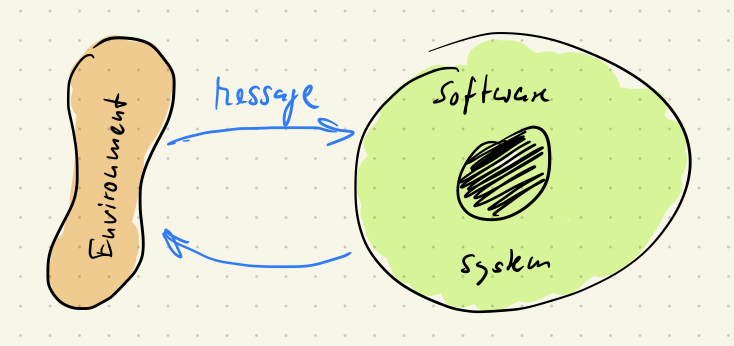 Environment
Message
Software
System